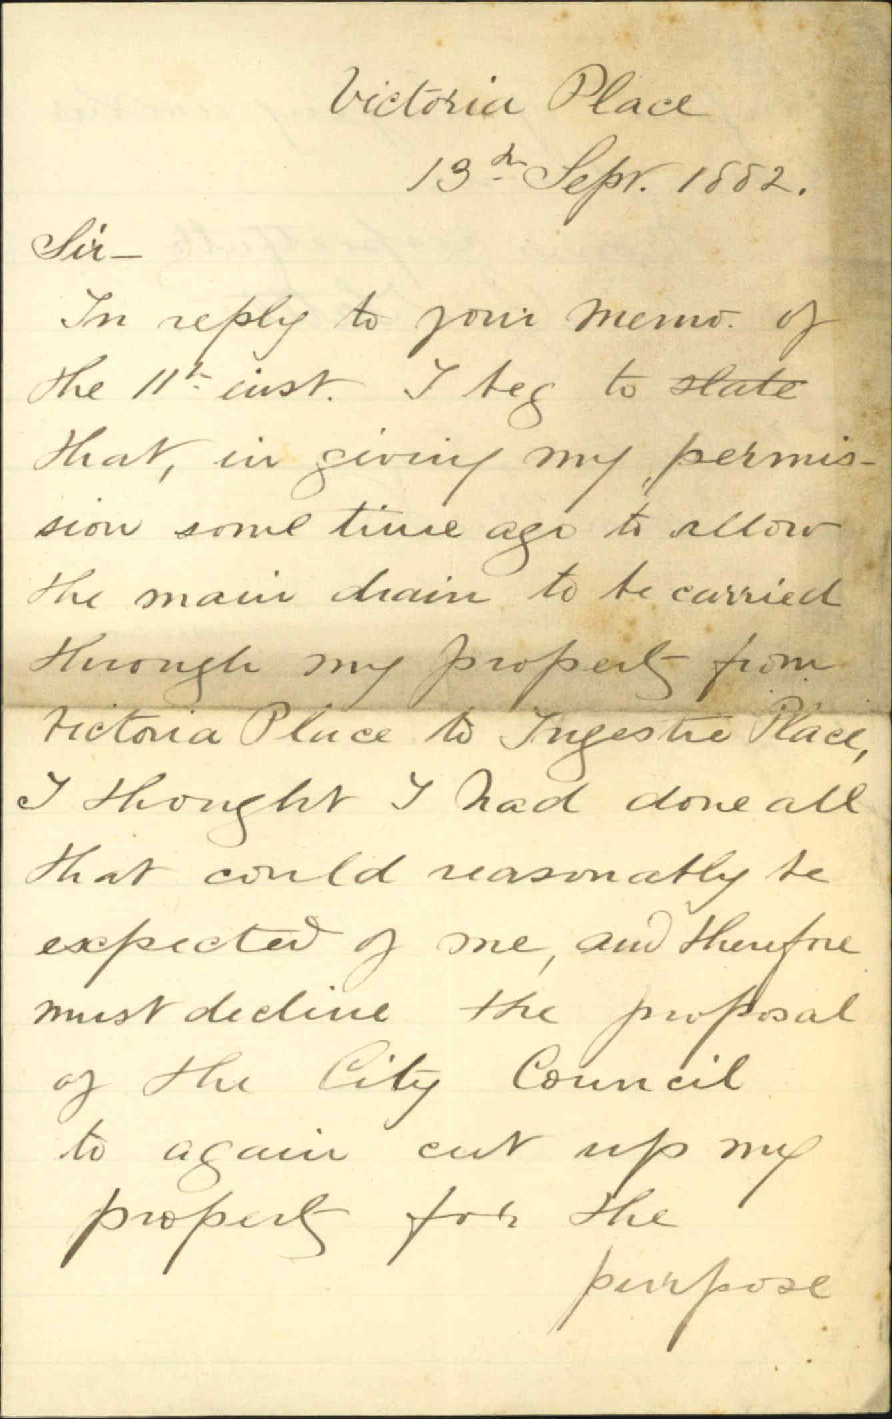 Victoria Place
13th Sept. 1882.
Sir—
In reply to your memo. of
the 11th inst. I beg to state
that, in giving my permis-
sion some time ago to allow
the main drain to be carried
through my property from
Victoria Place to Ingestre Place,
I thought I had done all
that could reasonably be
expected of me, and therefore
must decline the proposal
of the City Council
to again cut up my
property for the
purpose